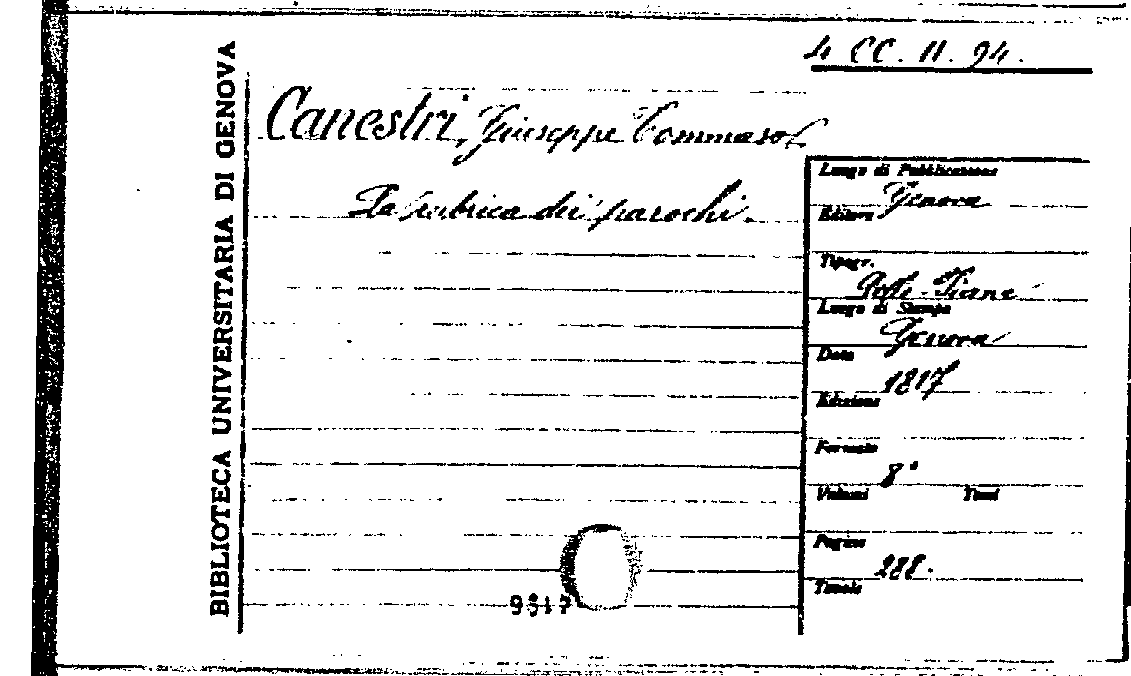 4 CC. II. 94.
BIBLIOTECA UNIVERSITARIA DI GENOVA
Canestri, Giuseppe Tommaso
La rubrica dei parochi.
Luogo di Pubblicazione
Genova
Editore
Tipogr.
Luogo di Stampa
Genova
Data
1817
Edizione
Formato
8°
Volumi Tomi
Pagine
288.
Tavole